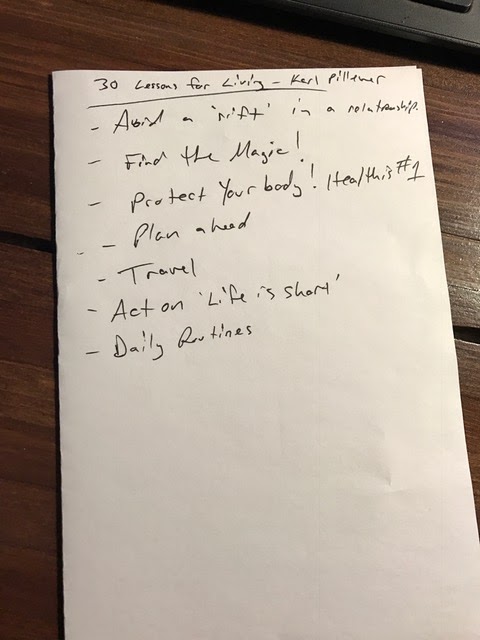 30 Lessons for Living - Karl Pillemer
- Avoid a 'rift' in a relationship.
- Find the Magic!
- Protect Your body! Health is #1
- Plan ahead
- Travel
- Act on 'Life is short'
- Daily Routines